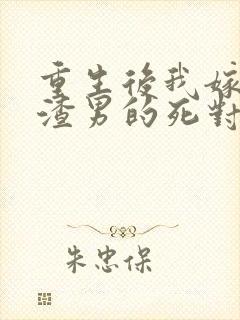 重生後我嫁
渣男的死對
朱忠保